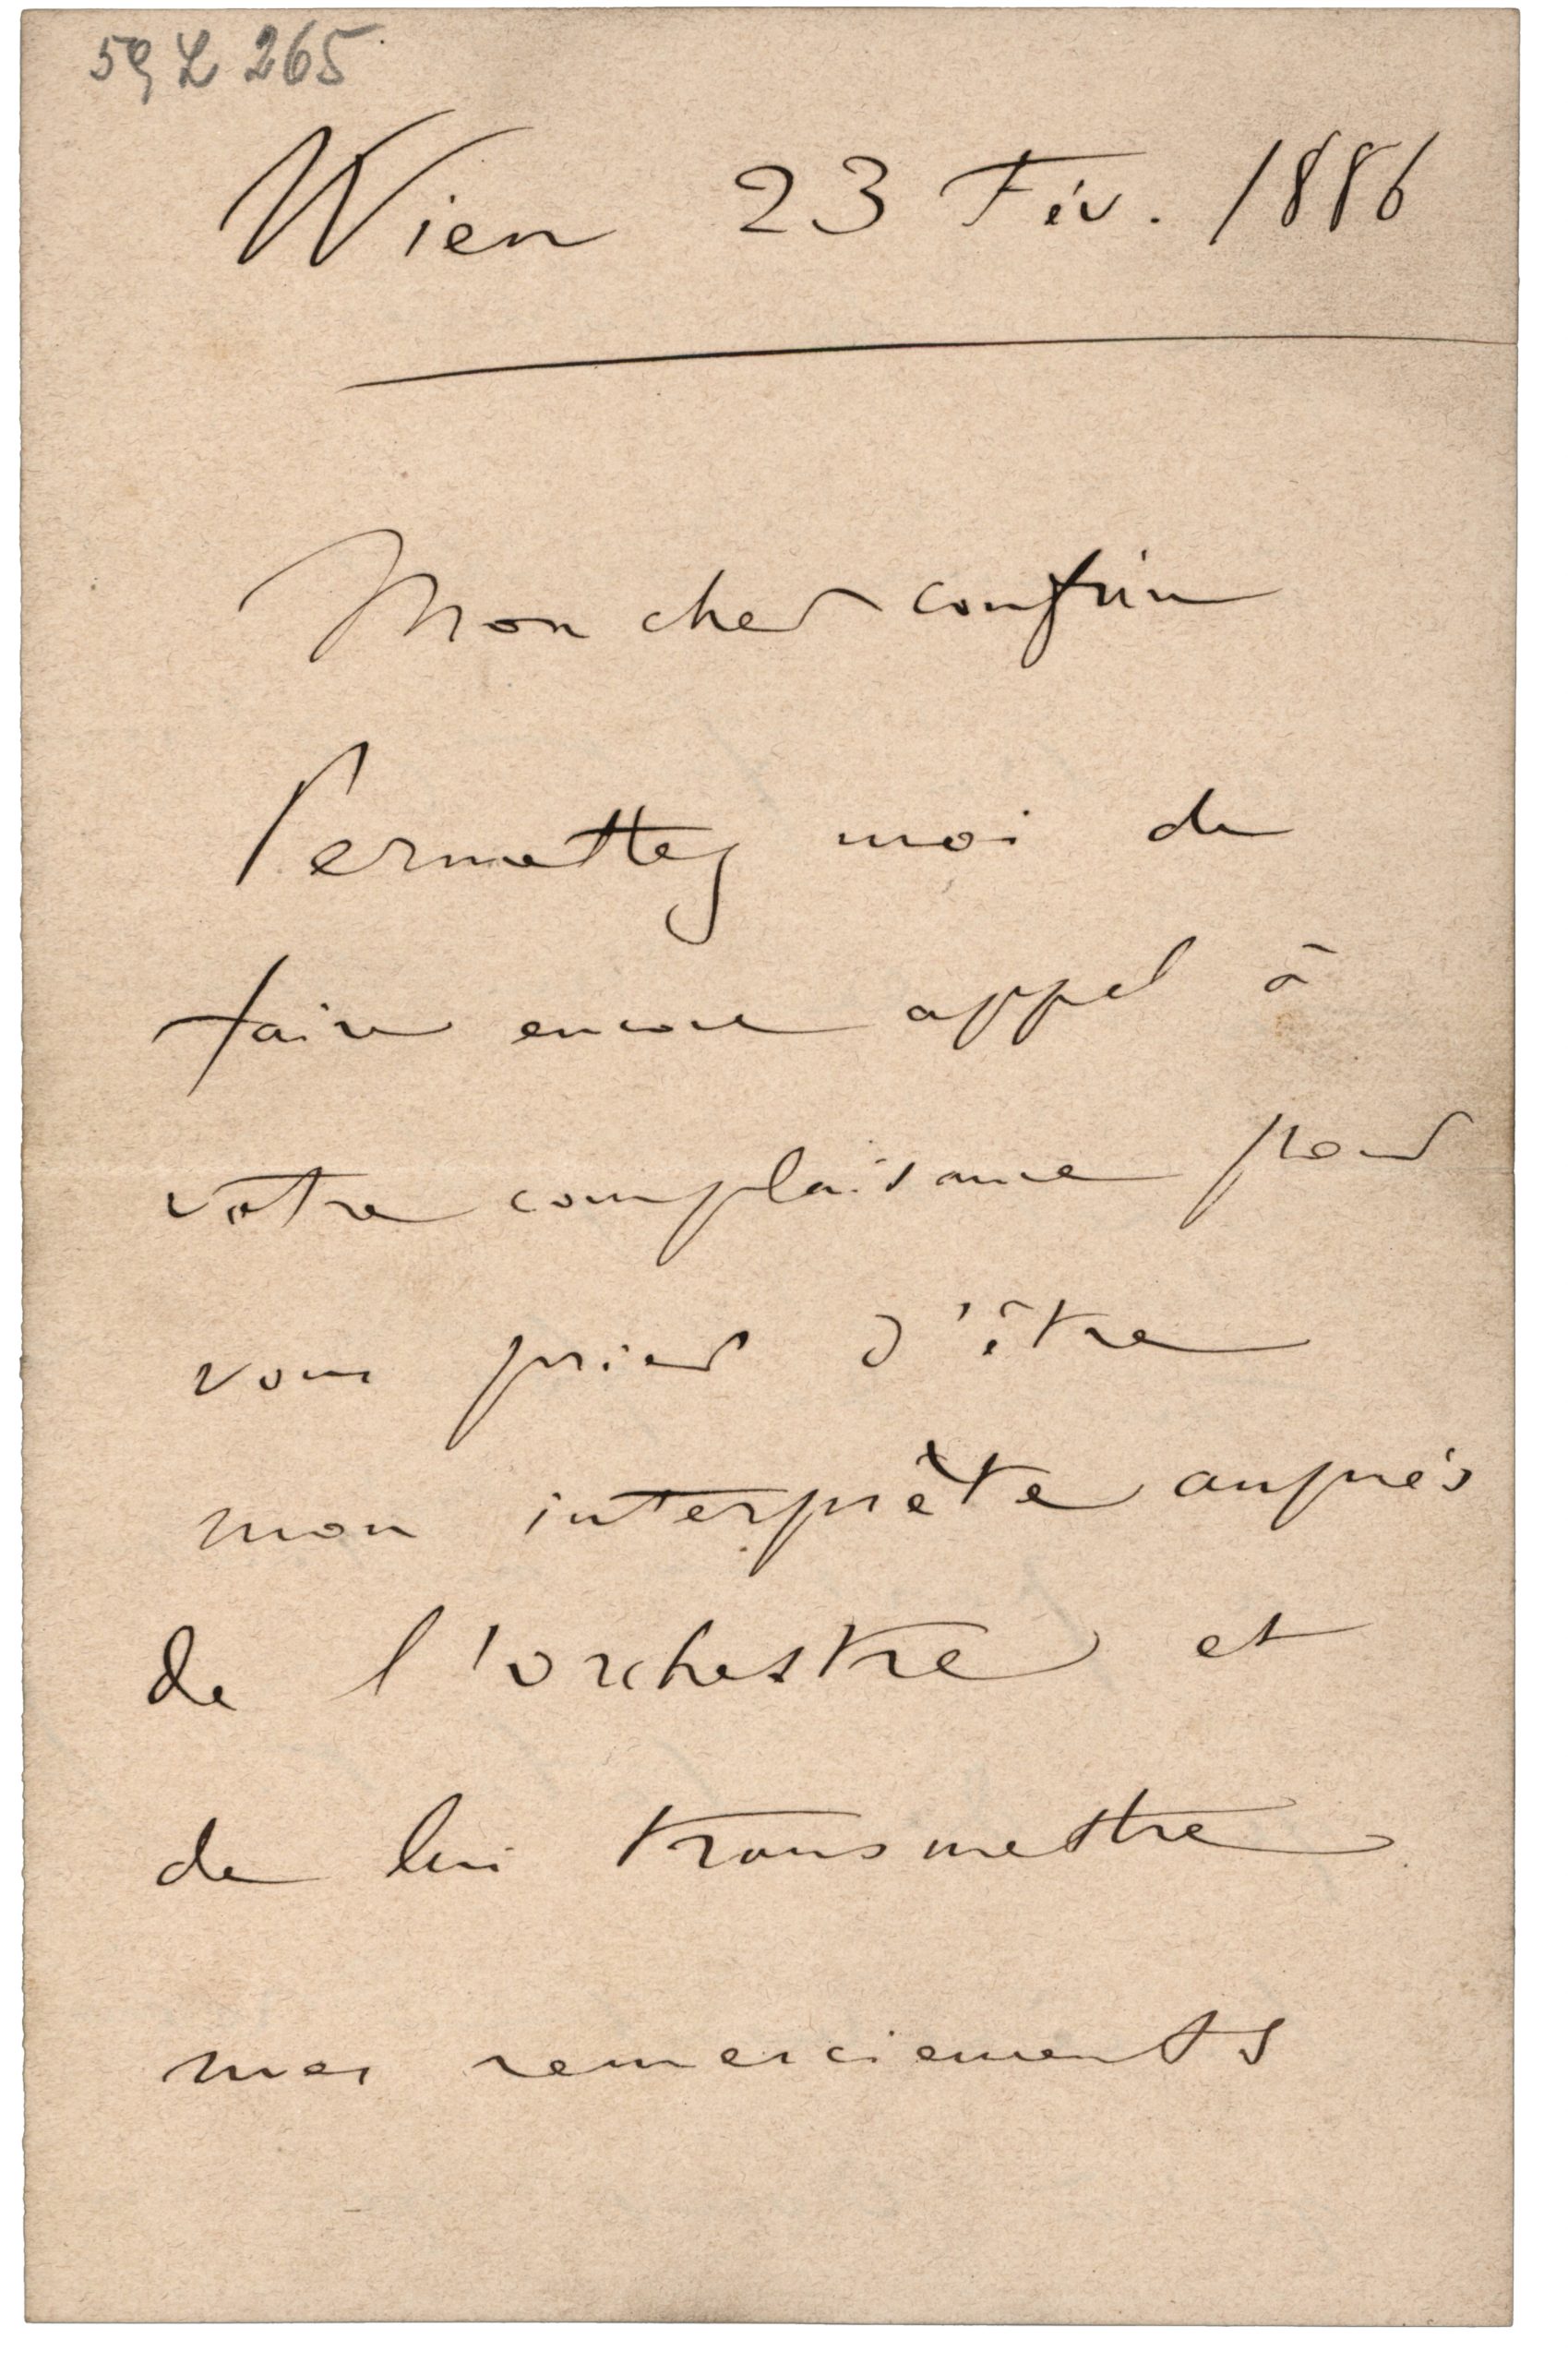 59 L 265
Wien 23 Fév. 1886
Mon cher confrère
Permettez moi de
faire encore appel à
votre complaisance pour
vous prier d'être
mon interprète auprès
de l'orchestre et
de lui transmettre
mes remerciements